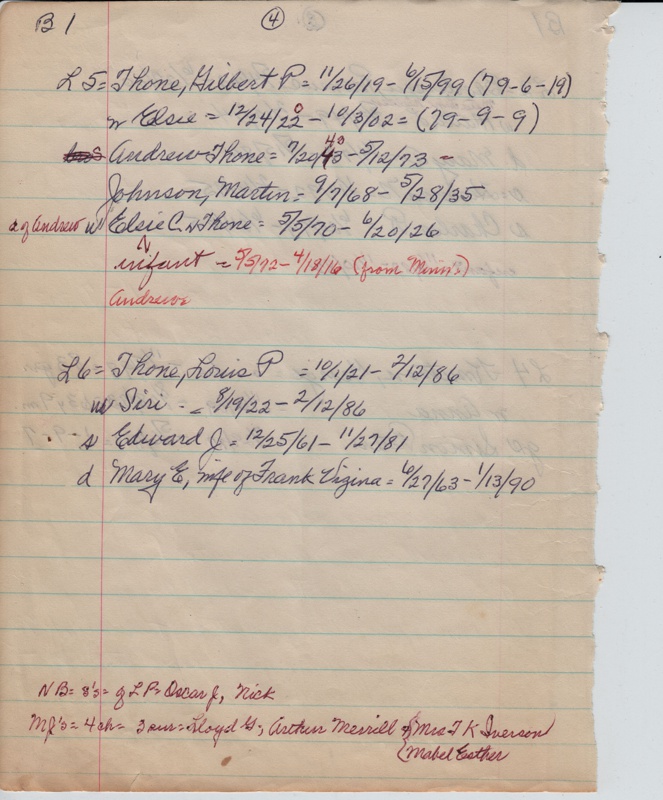 B 1 ④
L 5 = Thone, Gilbert P = 11/26/19 - 6/15/99 (79-6-19)
w Elsie = 12/24/22 0 - 10/3/02 = (79-9-9)
s Andrew Thone = 7/20/43 43 - 5/12/73 -
Johnson, Martin = 9/7/68 - 5/28/35
d of Andrew w Elsie C. Thone = 5/5/70 - 6/20/26
infant = 5/5/92 - 4/18/16 (from Minn's)
Andrew
L 6 = Thone, Louis P = 10/1/21 - 2/12/86
w Siri - = 8/19/22 - 2/12/86
s Edward J = 12/25/61 - 11/27/81
d Mary E, wife of Frank Vizina = 6/27/63 - 1/13/90
NB = s's = of L P = Oscar J, Nick
MJ's = 4 ch = 3 sur = Lloyd G; Arthur Merrill & Mrs T K Iverson
(Mabel Esther